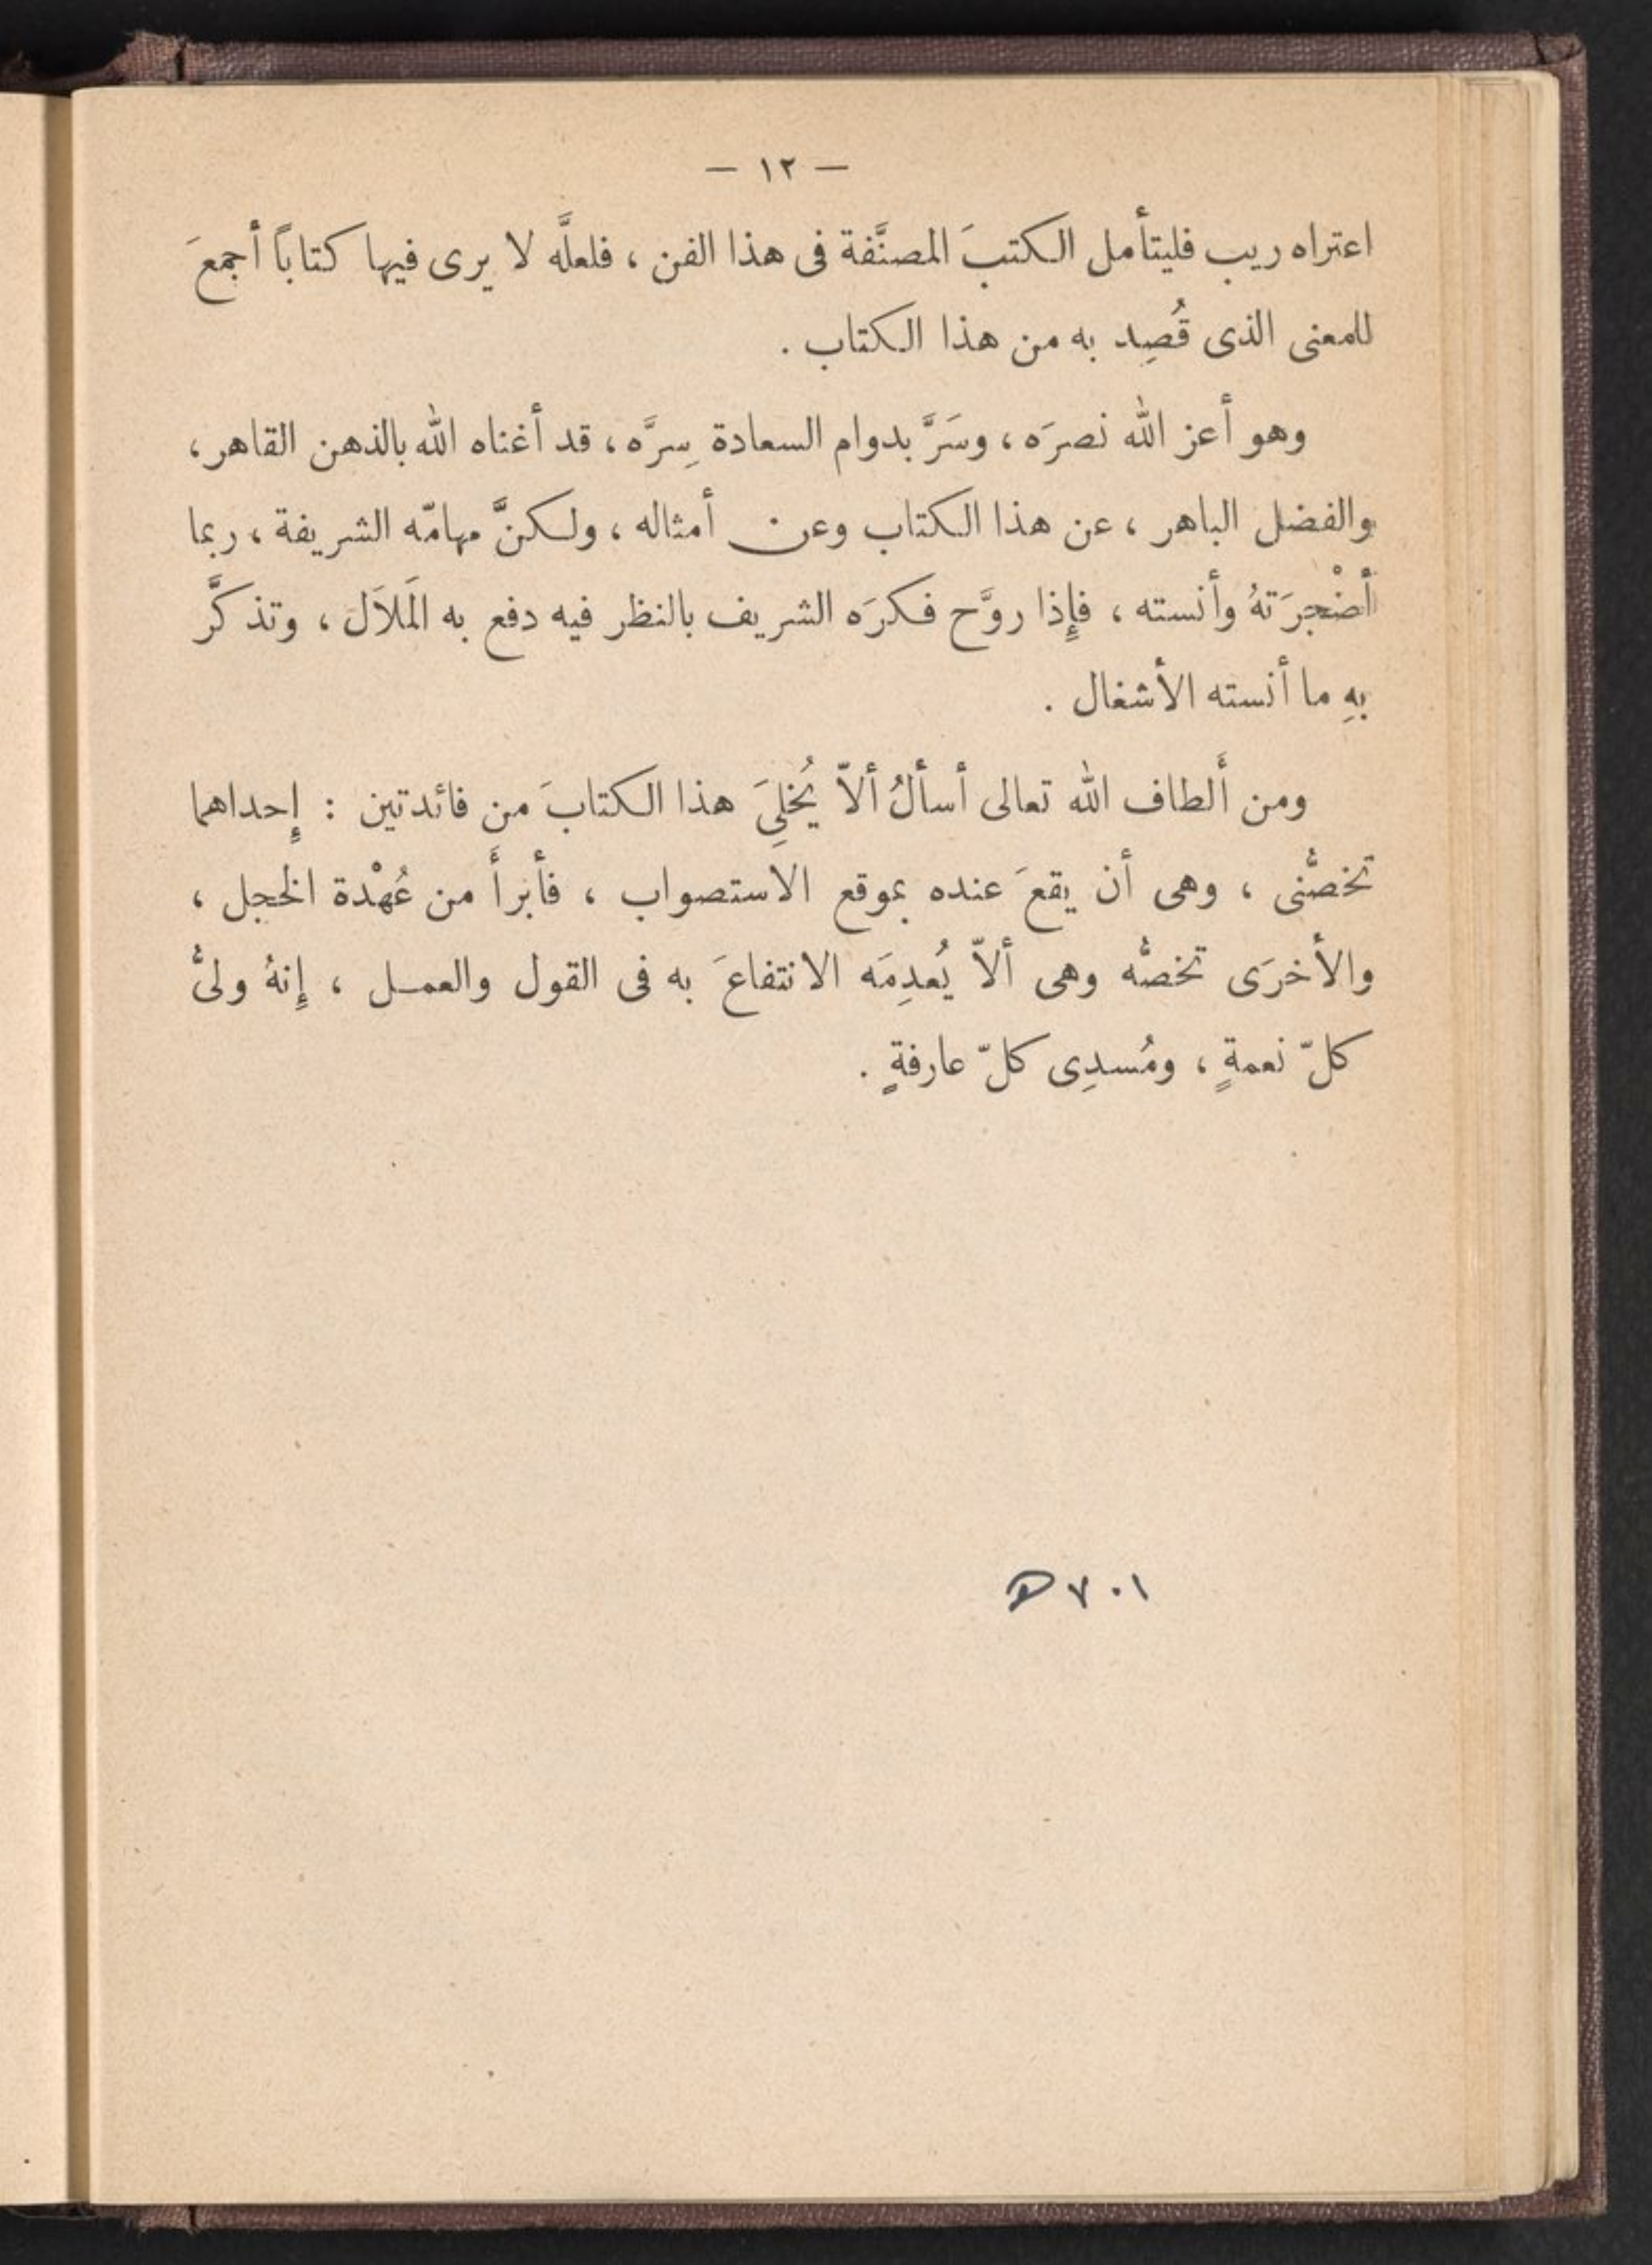 — ١٢ —
اعتراه ريب فليتأمل الكتبَ المصنَّفة فى هذا الفن ، فلعلَّه لا يرى فيها كتاباً أجمعَ
للمعنى الذى قُصِد به من هذا الكتاب .
وهو أعز الله نصرَه ، وسَرَّ بدوام السعادة سِرَّه ، قد أغناه الله بالذهن القاهر ،
والفضل الباهر ، عن هذا الكتاب وعن أمثاله ، ولكنَّ مهامّه الشريفة ، ربما
أضْجرَتهُ وأنسته ، فإِذا روَّح فكرَه الشريف بالنظر فيه دفع به المَلاَلَ ، وتذكَّر
بهِ ما أنسته الأشغال .
ومن أَلطاف الله تعالى أسألُ ألاّ يُخلِىَ هذا الكتابَ من فائدتين : إِحداهما
تخصُّنى ، وهى أن يقعَ عنده بموقع الاستصواب ، فأبرأَ من عُهْدة الخجل ،
والأخرَى تخصُّه وهى ألاّ يُعدِمَه الانتفاعَ به فى القول والعمل ، إِنهُ ولىُّ
كلّ نعمةٍ ، ومُسدِى كلّ عارفةٍ .
٧٠١ ھ